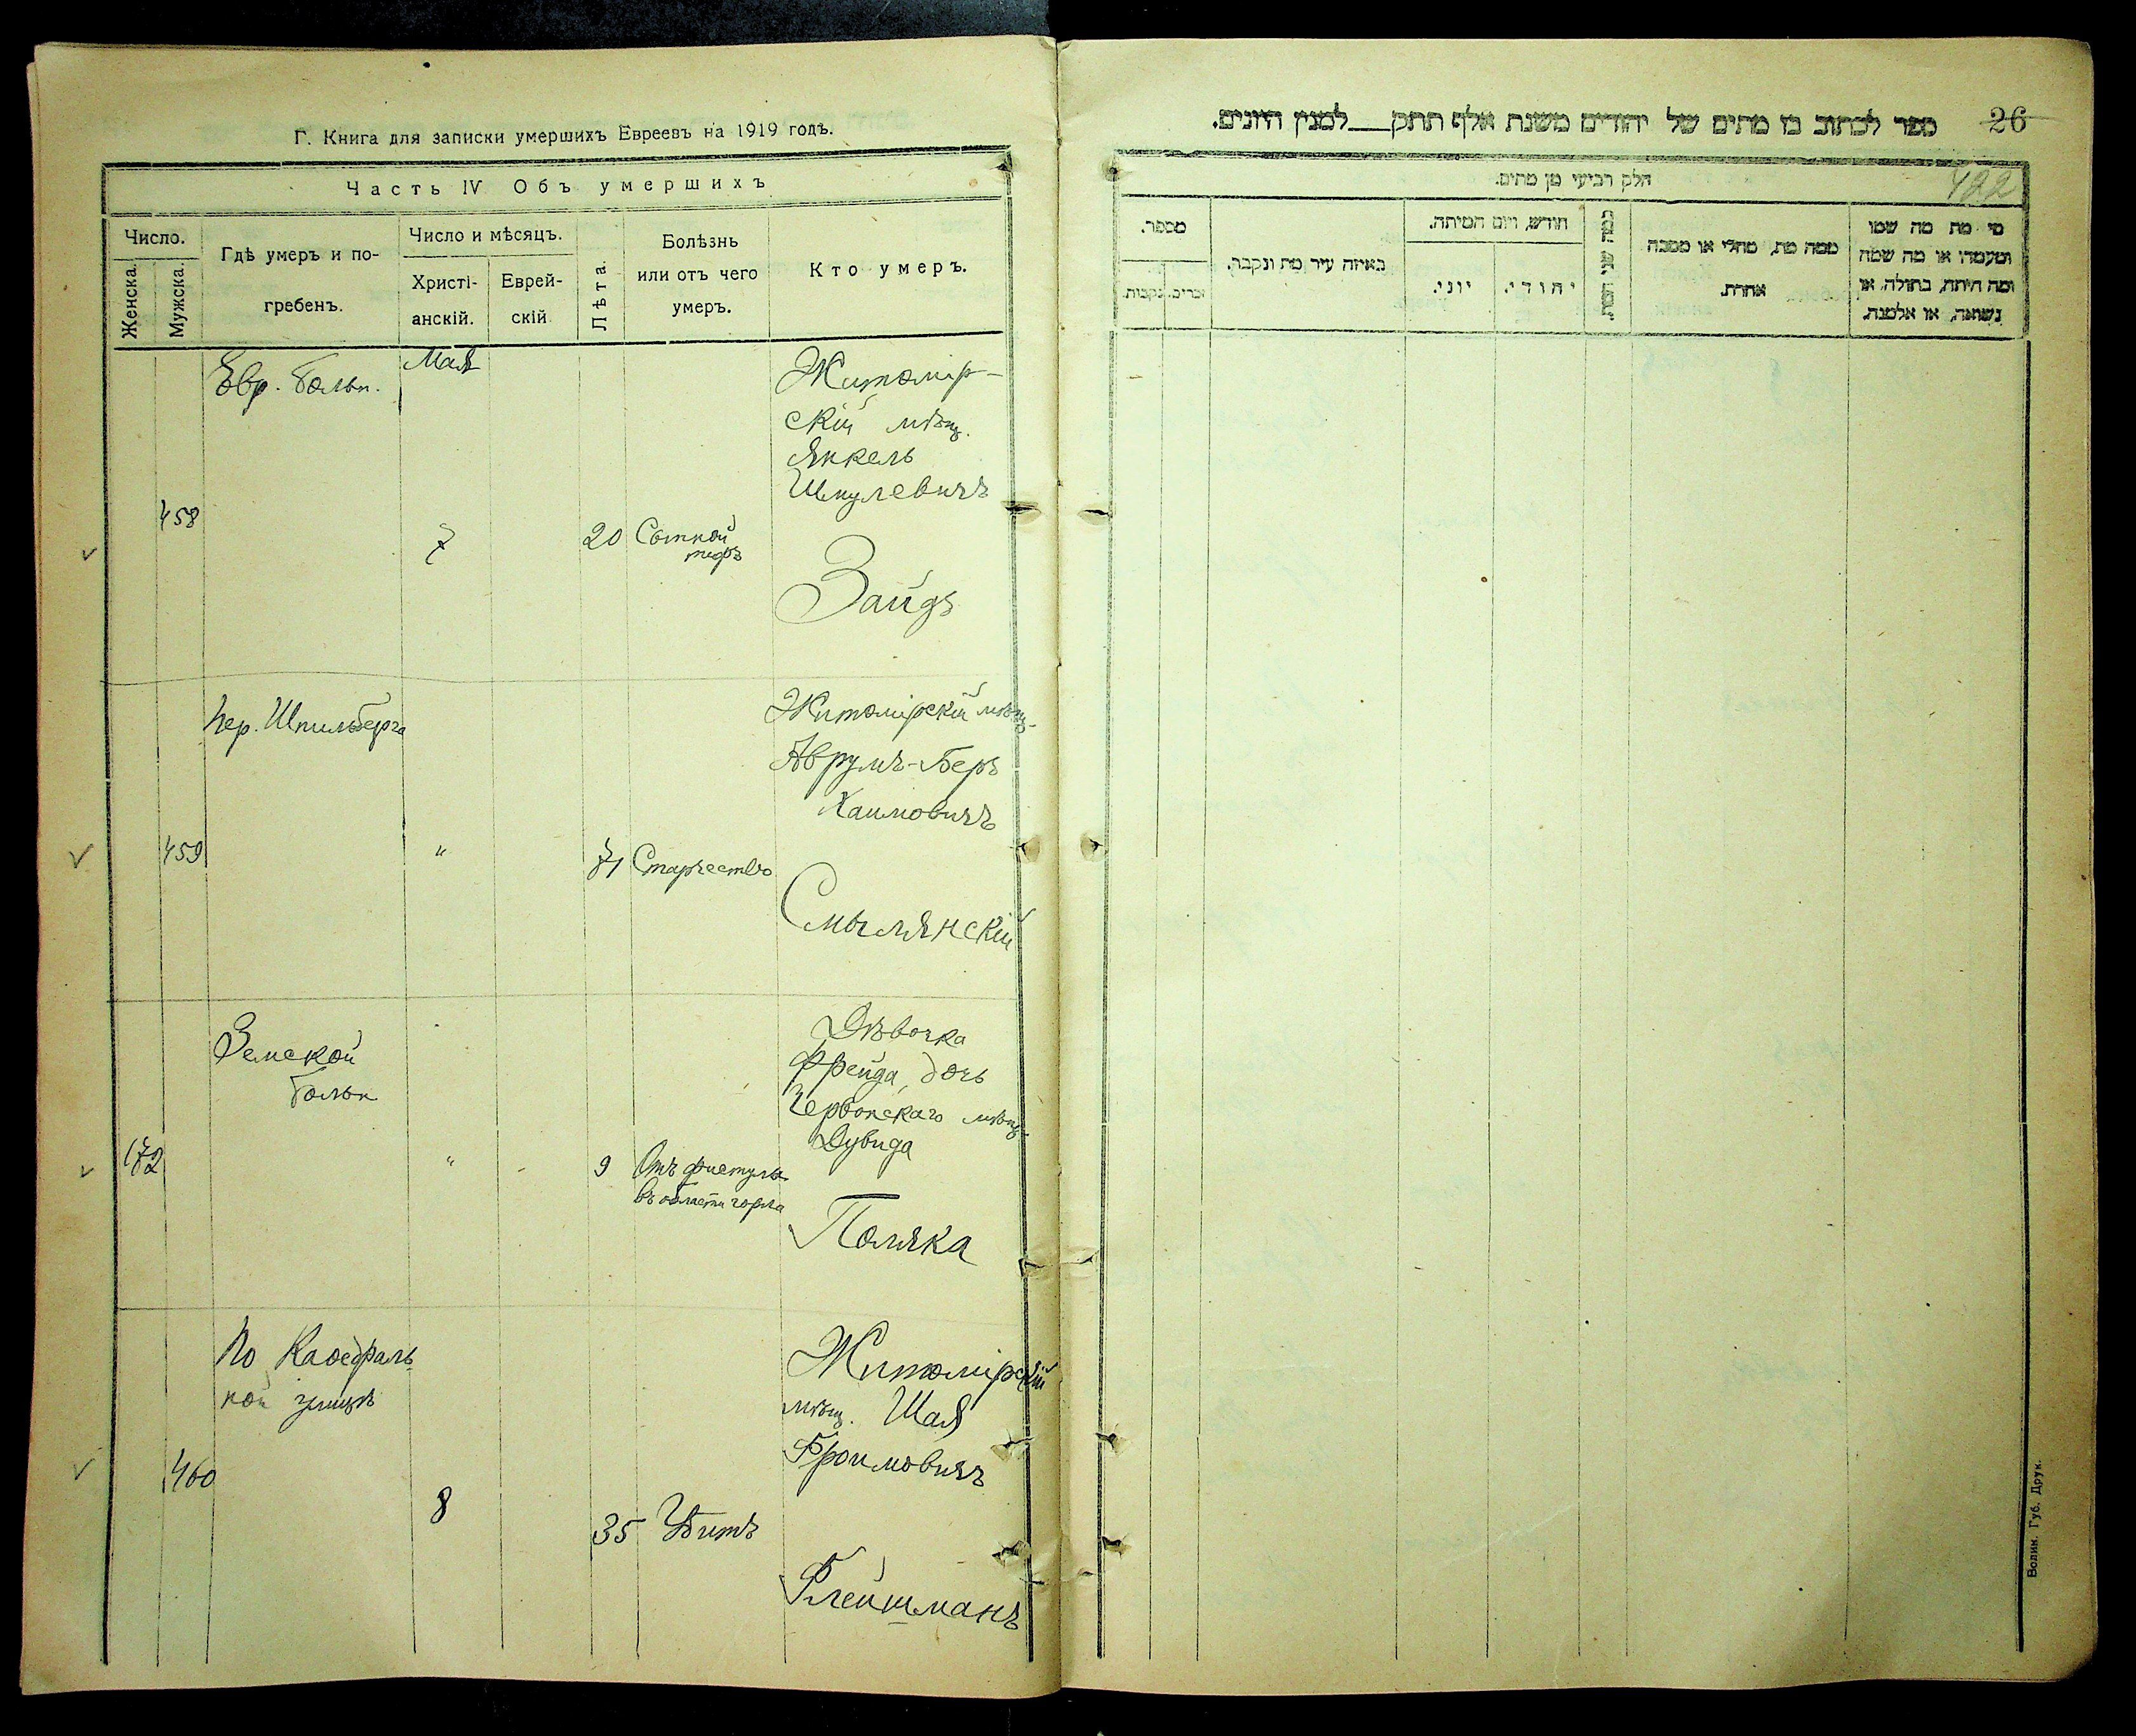 Г. Книга для записки умершихъ Евреевъ на 1919 годъ.
Часть IV Объ умершихъ
Число.
Женска.
Мужска.
Гдѣ умеръ и по-
гребенъ.
Число и мѣсяцъ.
Христі-
анскій.
Еврей-
скій
Лѣта.
Болѣзнь
или отъ чего
умеръ.
Кто умеръ.
458
Евр. больн.
Мая
7
20
Сыпной
тифъ
Житомір-
скій мѣщ.
Янкель
Шмулевичъ
Зайдъ
459
пер. Шпильберга
"
71
Старчество
Житомірскій мѣщ.
Аврумъ-Беръ
Хаимовичъ
Смылянскій
172
Земской
больн
"
9
Отъ фистулы
въ области горла
Дѣвочка
Фрейда, дочь
мѣщ.
Дувида
Поляка
460
По Каѳедраль-
ной улицѣ
8
35
Убитъ
Житомірскій
мѣщ. Шая
Фроимовичъ
Флейшманъ
26
ספר לכתוב בו מתים של יהודים משנת אלף תתק___למנין היונים.
422
חלק רביעי מן מתים.
מספר.
זכרים.
נקבות.
באיזה עיר מת ונקבר.
חודש, ויום המיתה.
יוני.
יהודי.
ממה מת, מחלי או מסבה
אחרת.
מי מת מה שמו
ומעמדו או מה שמה
ומה היתה, בתולה, או
נשואה, או אלמנה.
Волин. Губ. Друк.